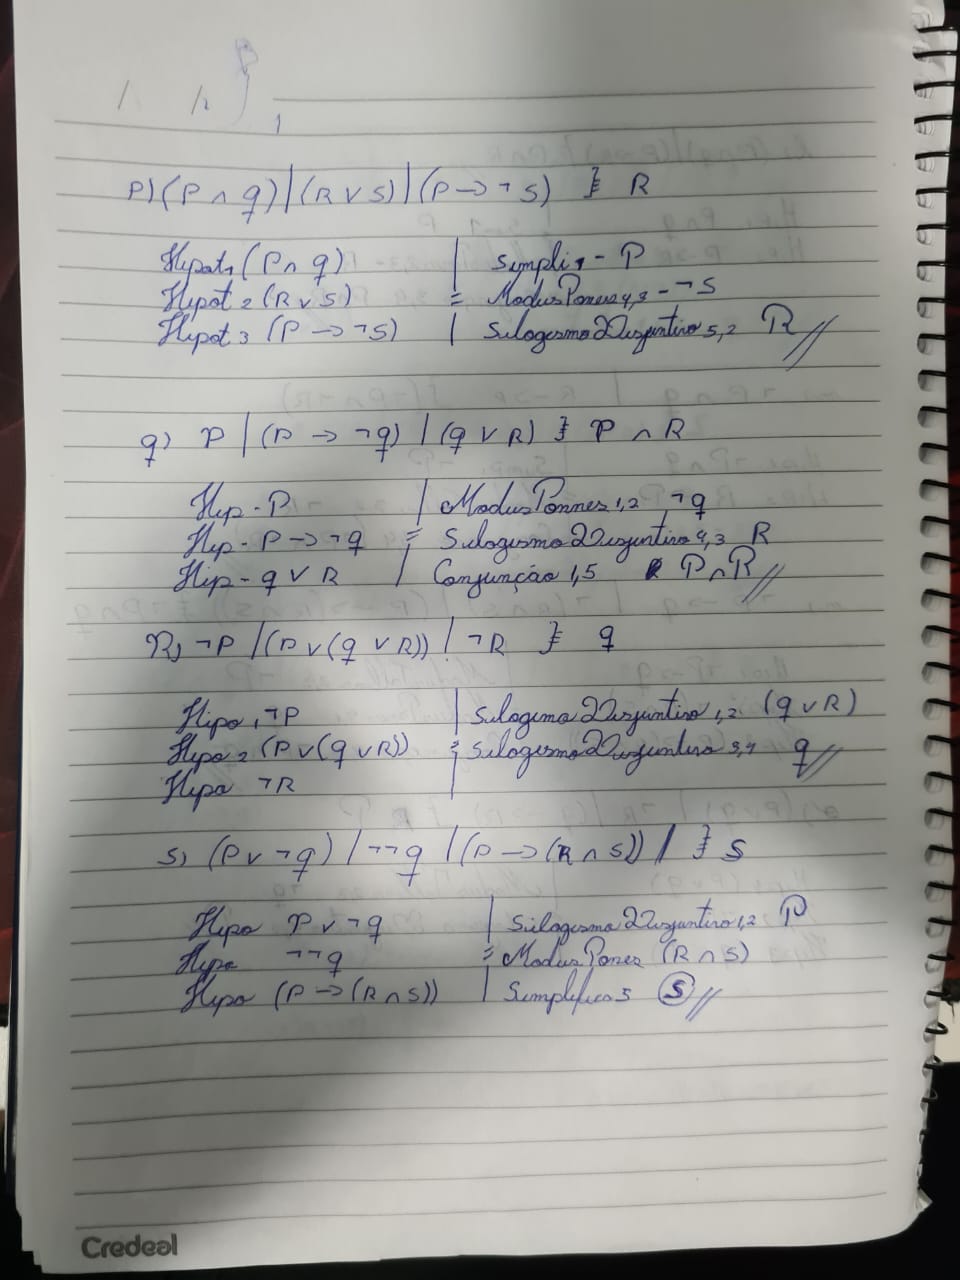 P) (P ∧ q) | (R ∨ S) | (P → ¬ S) ⊦ R
Hipot 1 (P ∧ q) | Simpli 1 - P
Hipot 2 (R ∨ S) = Modus Pones 4,3 - ¬ S
Hipot 3 (P → ¬ S) | Silogismo Disjuntivo 5,2 R //
q) P | (P → ¬ q) | (q ∨ R) ⊦ P ∧ R
Hip - P | Modus Ponnes 1,2 ¬ q
Hip - P → ¬ q = Silogismo Disjuntivo 4,3 R
Hip - q ∨ R | Conjunção 1,5 P ∧ R //
R) ¬ P | (P ∨ (q ∨ R)) | ¬ R ⊦ q
Hipo 1 ¬ P | Silogimo Disjuntivo 1,2 (q ∨ R)
Hipo 2 (P ∨ (q ∨ R)) = Silogismo Disjuntivo 3,4 q //
Hipo ¬ R
S) (P ∨ ¬ q) | ¬¬ q | (P → (R ∧ S)) | ⊦ S
Hipo P ∨ ¬ q | Silogismo Disjuntivo 1,2 P
Hipo ¬¬ q = Modus Pones (R ∧ S)
Hipo (P → (R ∧ S)) | Simplifica 5 S //
Credeal